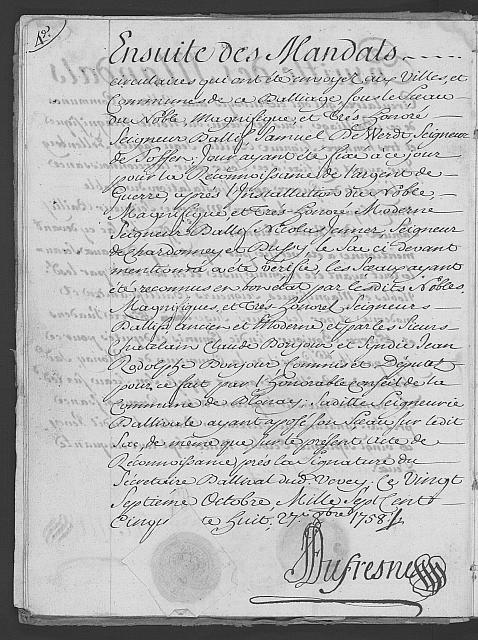 42.
Ensuite des Mandats
circulaires qui ont été envoyez aux Villes, et
Communes de ce Balliage sous le Sceau
du Noble, Magnifique et Très Honoré
Seigneur Ballif Samuel De Werdt Seigneur
de Toffen, Jour ayant été fixé à ce jour
pour la Réconnoissance de l'argent de
Guerre, après l'Installation du Noble,
Magnifique et Très Honoré Moderne
Seigneur Ballif Nicolas Jenner Seigneur
de Chardonney et Bussy, le Sac ci devant
mentionné a été verifié, les Sceaux ayant
été reconnus en bon état par lesdits Nobles,
Magnifiques, et Très Honorez Seigneurs
Ballifs l'ancien et Moderne et par les Sieurs
Chatelain Claude Bonjour et Sindic Jean
Rodolphe Bonjour Commis et Député
pour ce fait par l'Honorable Conseil de la
Commune de Blonay, Sadite Seigneurie
Ballivale ayant aposé son Sceau sur ledit
Sac, de même que sur le présent acte de
Réconnoissance, près la Signature du
Sécretaire Ballival dud. Vevey, Ce Vingt
Septième Octobre Mille Sept Cents
Cinqu te Huit, 27.e 8bre 1758.
Dufresne